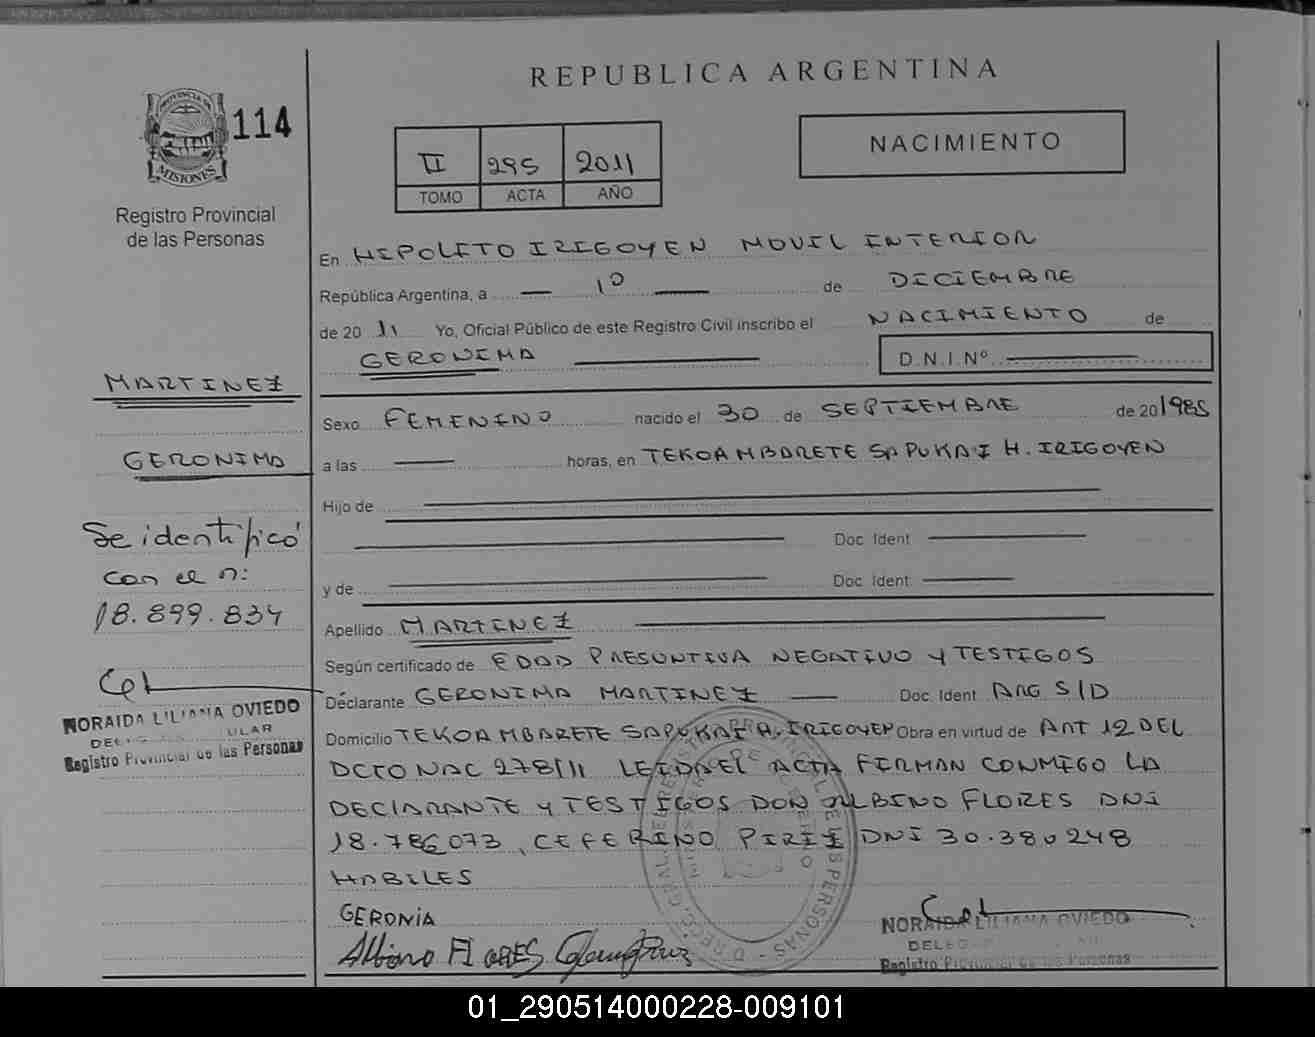 REPUBLICA ARGENTINA
PROVINCIA DE
MISIONES
114
Registro Provincial
de las Personas
II 295 2011
TOMO ACTA AÑO
NACIMIENTO
En HIPOLITO IRIGOYEN MOVIL INTERIOR
República Argentina, a — 1º — de DICIEMBRE
de 20 11 Yo, Oficial Público de este Registro Civil inscribo el NACIMIENTO de
GERONIMA — D.N.I.Nº —
MARTINEZ
GERONIMA
Sexo FEMENINO nacido el 30 de SEPTIEMBRE de 20 1985
a las — horas, en TEKOA MBARETE SAPUKAI H. IRIGOYEN
Hijo de —
— Doc. Ident. —
y de — Doc. Ident. —
Apellido MARTINEZ —
Según certificado de EDAD PRESUNTIVA NEGATIVO Y TESTIGOS
Declarante GERONIMA MARTINEZ — Doc. Ident. ARG S/D
Domicilio TEKOA MBARETE SAPUKAI H. IRIGOYEN Obra en virtud de ART 12 DEL
DCTO NAC 278/11 LEIDA EL ACTA FIRMAN CONMIGO LA
DECLARANTE Y TESTIGOS DON ALBINO FLORES DNI
18.786073, CEFERINO PIRIZ DNI 30.380248
HABILES
Se identificó
con el n:
18.899.834
NORAIDA LILIANA OVIEDO
Registro Provincial de las Personas
GERONIA
Albino FLORES
NORAIDA LILIANA OVIEDO
Registro Provincial de las Personas
01_290514000228-009101